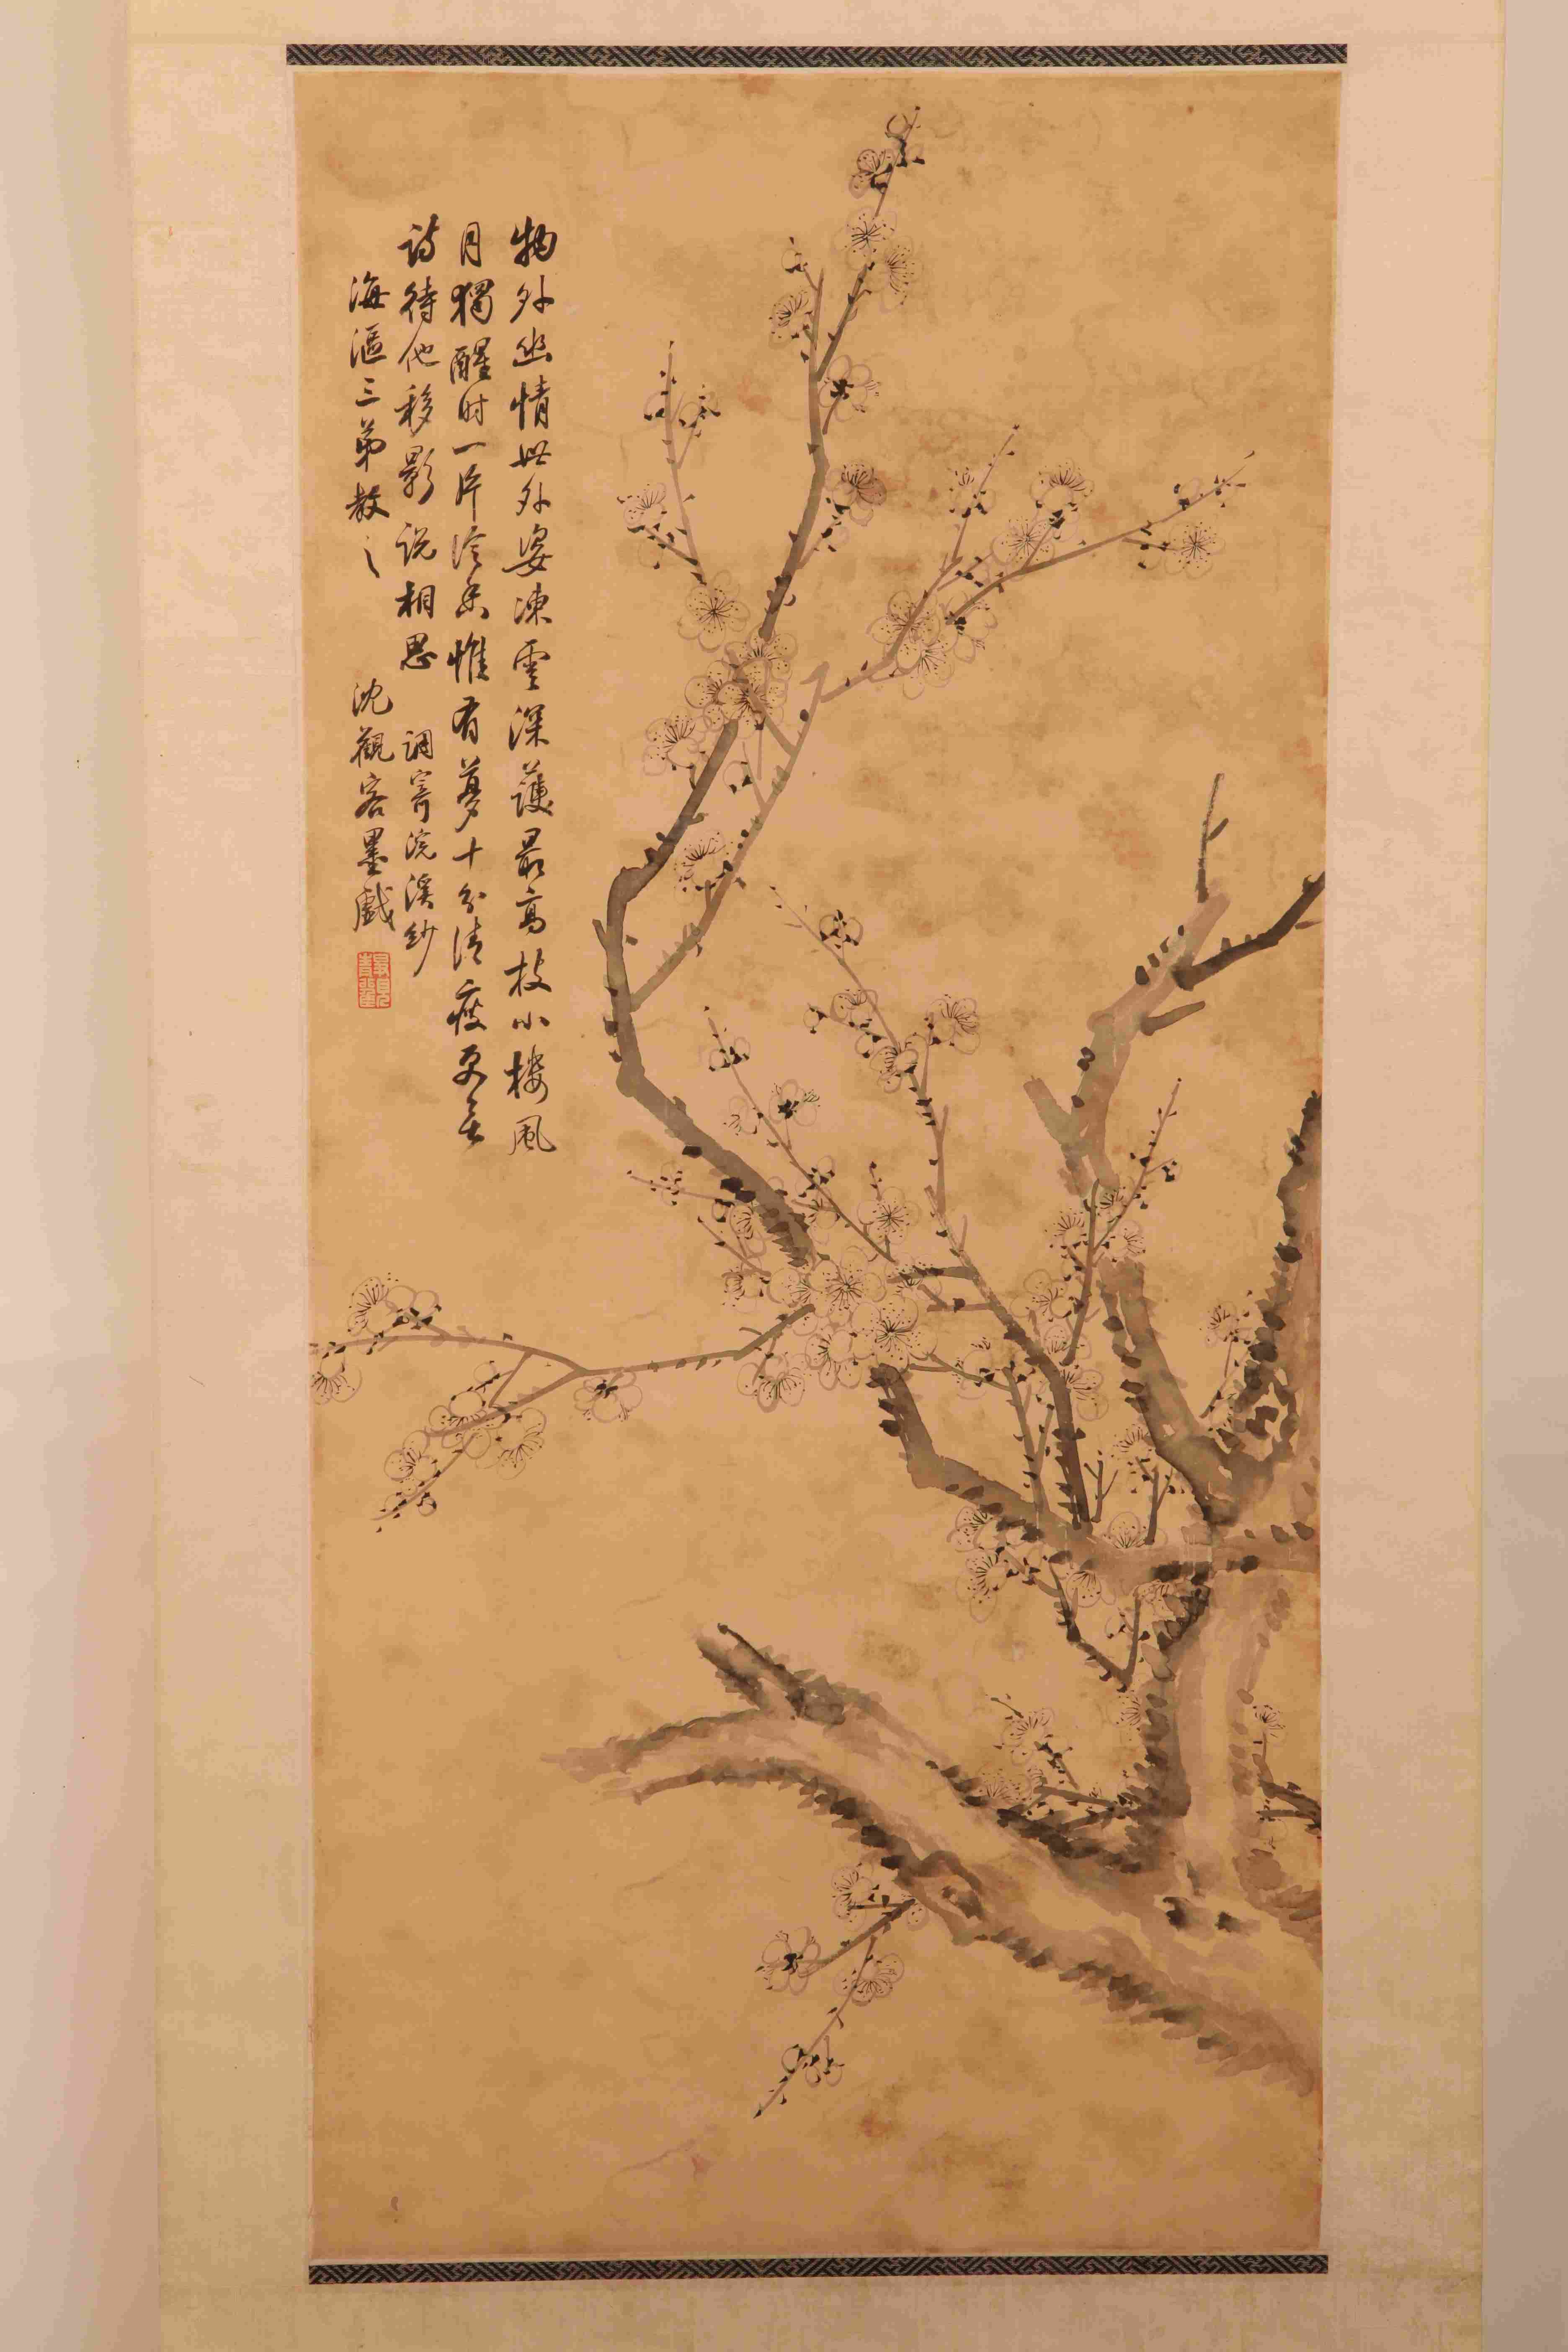 物外幽情世外姿凍雲深護最高枝小樓風
月獨醒时一片冷香惟有夢十分清瘦更無
詩待他移影說相思 調寄浣溪紗
海漚三弟教之 沈觀客墨戲